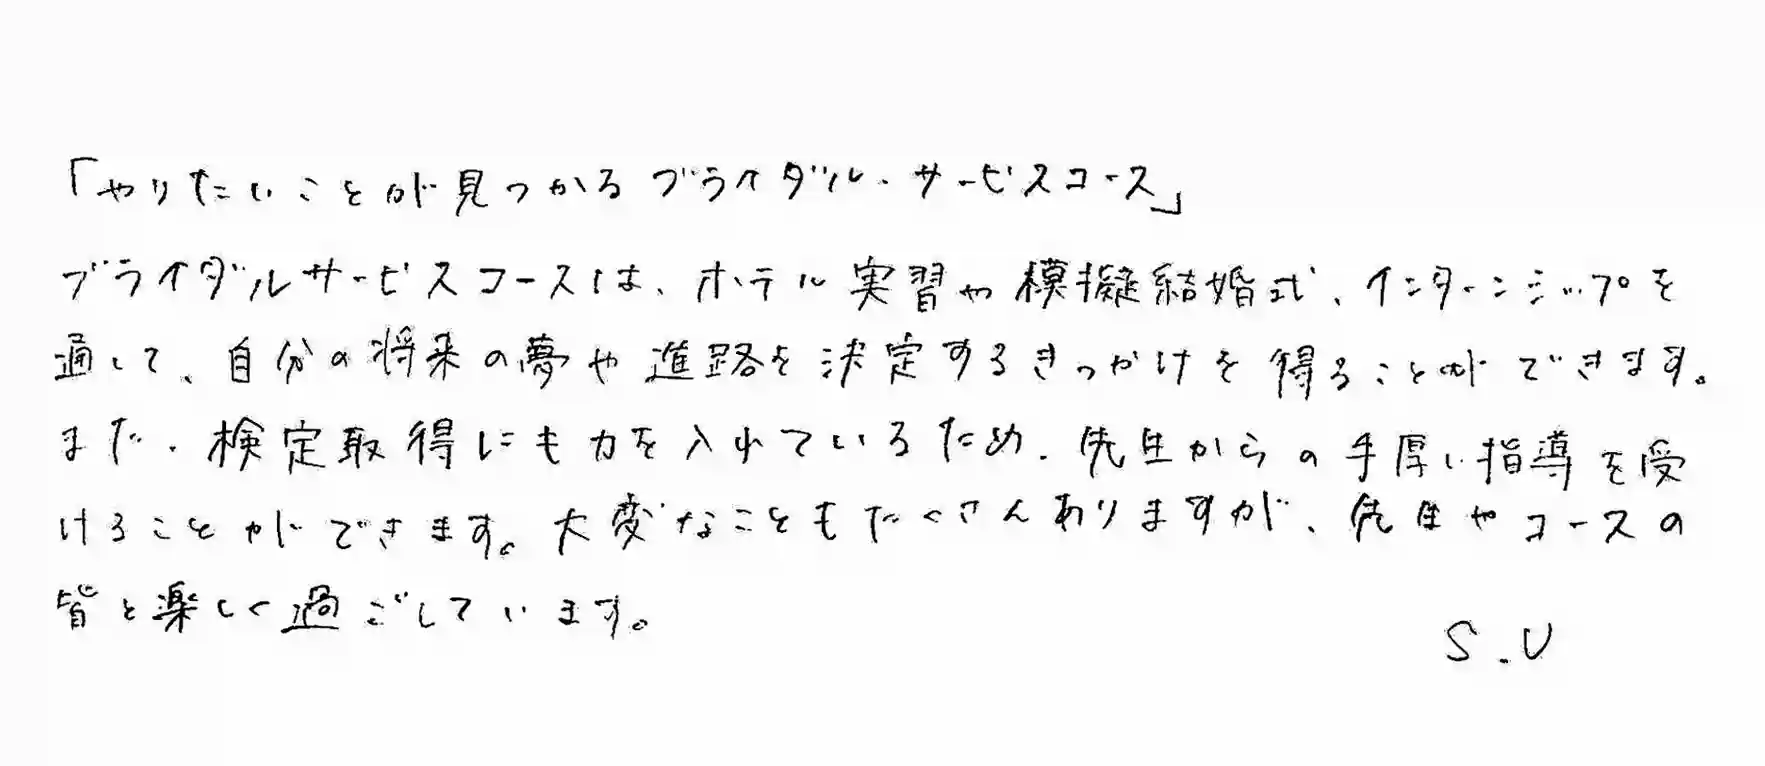 「やりたいことが見つかるブライダル・サービスコース」
ブライダルサービスコースは、ホテル実習や模擬結婚式、インターンシップを
通して、自分の将来の夢や進路を決定するきっかけを得ることができます。
まだ、検定取得にも力を入れているため、先生からの手厚い指導を受
けることができます。大変なこともたくさんありますが、先生やコースの
皆と楽しく過ごしています。
S.U